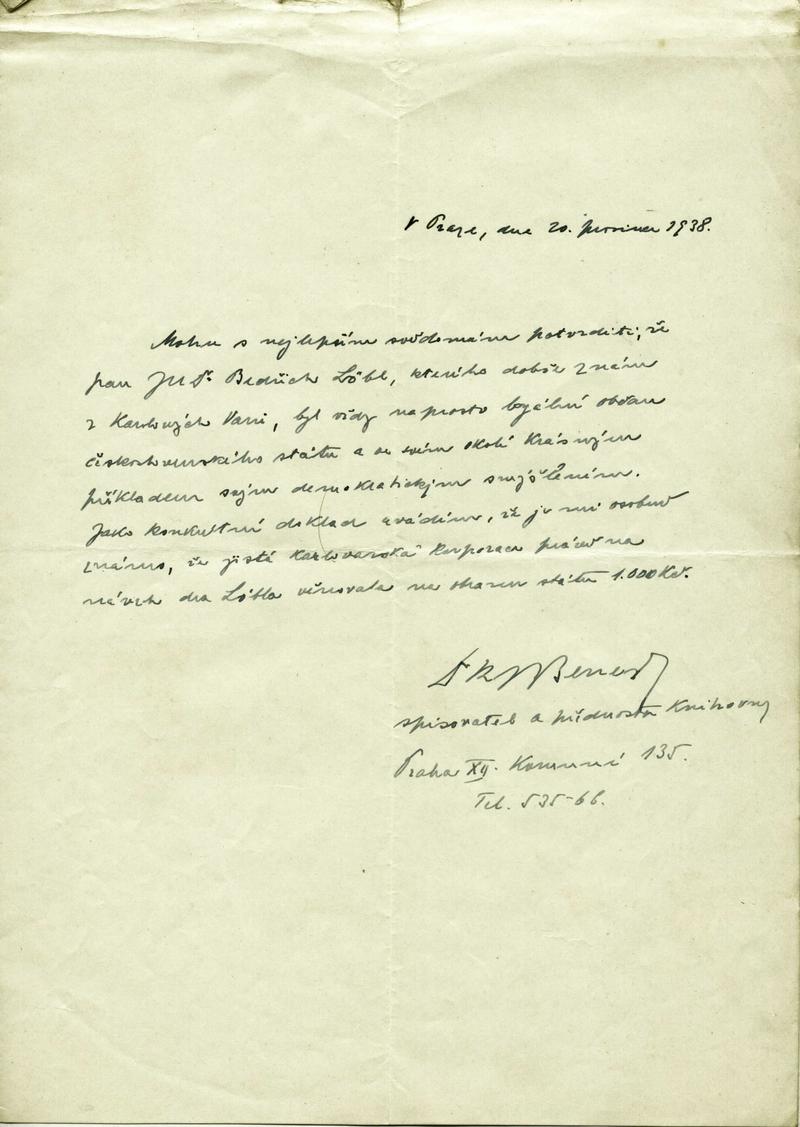 V Praze, dne 20. prosince 1938.
Mohu s nejlepším svědomím potvrditi, že
pan JUDr. Bedřich Löbl, kterého dobře znám
z Karlových Varů, byl vždy naprosto loyální občan
československého státu a ve svém okolí krásným
příkladem svým demokratickým smýšlením.
Jako konkretní doklad uvádím, že je mi osobně
známo, že jistá karlovarská korporace právě na
návrh dra Löbla věnovala na obranu státu 1.000 Kč.
Dr K J Beneš
spisovatel a přednosta knihovny
Praha XII. Korunní 135.
Tel. 535-66.